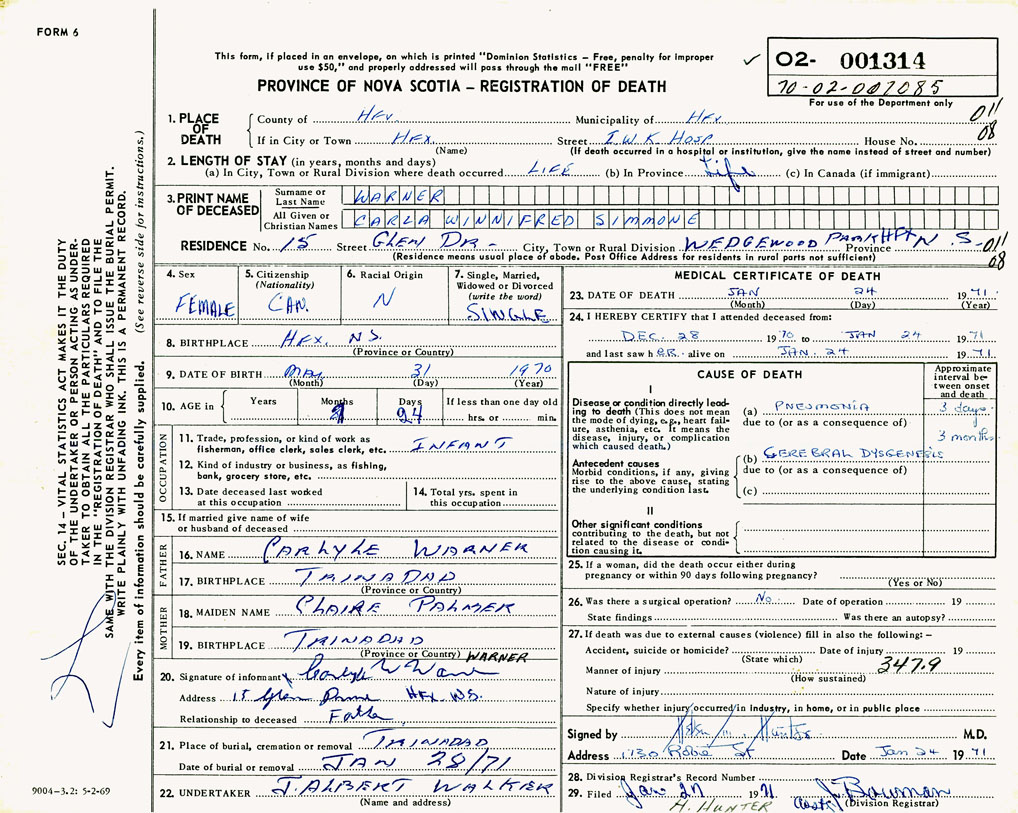 FORM 6
This form, if placed in an envelope, on which is printed "Dominion Statistics – Free, penalty for improper
use $50," and properly addressed will pass through the mail "FREE"
PROVINCE OF NOVA SCOTIA – REGISTRATION OF DEATH
✓ 02- 001314
70-02-007085
For use of the Department only
1. PLACE OF DEATH
County of HFX Municipality of HFX 011
If in City or Town HFX Street I.W.K HOSP House No. 08
(Name) (If death occurred in a hospital or institution, give the name instead of street and number)
2. LENGTH OF STAY (in years, months and days)
(a) In City, Town or Rural Division where death occurred LIFE (b) In Province Life (c) In Canada (if immigrant)
3. PRINT NAME OF DECEASED
Surname or Last Name WARNER
All Given or Christian Names CARLA WINNIFRED SIMMONE
RESIDENCE No. 15 Street GLEN DR- City, Town or Rural Division WEDGEWOOD PARK HFX Province N.S- 011
(Residence means usual place of abode. Post Office Address for residents in rural parts not sufficient) 08
4. Sex
FEMALE
5. Citizenship
(Nationality)
CAN.
6. Racial Origin
N
7. Single, Married,
Widowed or Divorced
(write the word)
SINGLE
8. BIRTHPLACE HFX. N.S.
(Province or Country)
9. DATE OF BIRTH MAY 31 1970
(Month) (Day) (Year)
10. AGE in
Years Months Days If less than one day old
24 hrs. or min.
OCCUPATION
11. Trade, profession, or kind of work as
fisherman, office clerk, sales clerk, etc. INFANT
12. Kind of industry or business, as fishing,
bank, grocery store, etc.
13. Date deceased last worked
at this occupation
14. Total yrs. spent in
this occupation
15. If married give name of wife
or husband of deceased
FATHER
16. NAME CARLYLE WARNER
17. BIRTHPLACE TRINADAD
(Province or Country)
MOTHER
18. MAIDEN NAME CLAIRE PALMER
19. BIRTHPLACE TRINADAD
(Province or Country) WARNER
20. Signature of informant
Address 15 Glen Drive HFX N.S.
Relationship to deceased Father
21. Place of burial, cremation or removal TRINADAD
Date of burial or removal JAN 28/71
22. UNDERTAKER J. ALBERT WALKER
(Name and address)
MEDICAL CERTIFICATE OF DEATH
23. DATE OF DEATH JAN 24 1971.
(Month) (Day) (Year)
24. I HEREBY CERTIFY that I attended deceased from:
DEC. 28 1970 to JAN 24 1971
and last saw her alive on JAN. 24 1971.
CAUSE OF DEATH
Approximate
interval be-
tween onset
and death
I
Disease or condition directly lead-
ing to death (This does not mean
the mode of dying, e.g., heart fail-
ure, asthenia, etc. It means the
disease, injury, or complication
which caused death.)
(a) PNEUMONIA 3 days.
due to (or as a consequence of)
3 months.
Antecedent causes
Morbid conditions, if any, giving
rise to the above cause, stating
the underlying condition last.
(b) CEREBRAL DYSGENESIS
due to (or as a consequence of)
(c)
II
Other significant conditions
contributing to the death, but not
related to the disease or condi-
tion causing it.
25. If a woman, did the death occur either during
pregnancy or within 90 days following pregnancy?
(Yes or No)
26. Was there a surgical operation? No. Date of operation 19
State findings Was there an autopsy?
27. If death was due to external causes (violence) fill in also the following: –
Accident, suicide or homicide? Date of injury 19
(State which) 347.9
Manner of injury
(How sustained)
Nature of injury
Specify whether injury occurred in industry, in home, or in public place
Signed by M.D.
Address 1730 Robie St Date Jan 24 1971
28. Division Registrar's Record Number
29. Filed Jan 27 1971 J. Bowman
H. HUNTER (Division Registrar)
SEC. 14 – VITAL STATISTICS ACT MAKES IT THE DUTY
OF THE UNDERTAKER OR PERSON ACTING AS UNDER-
TAKER TO OBTAIN ALL THE PARTICULARS REQUIRED
IN THE "REGISTRATION OF DEATH" AND TO FILE THE
SAME WITH THE DIVISION REGISTRAR WHO SHALL ISSUE THE BURIAL PERMIT.
WRITE PLAINLY WITH UNFADING INK. THIS IS A PERMANENT RECORD.
Every item of information should be carefully supplied. (See reverse side for instructions.)
9004-3.2: 5-2-69